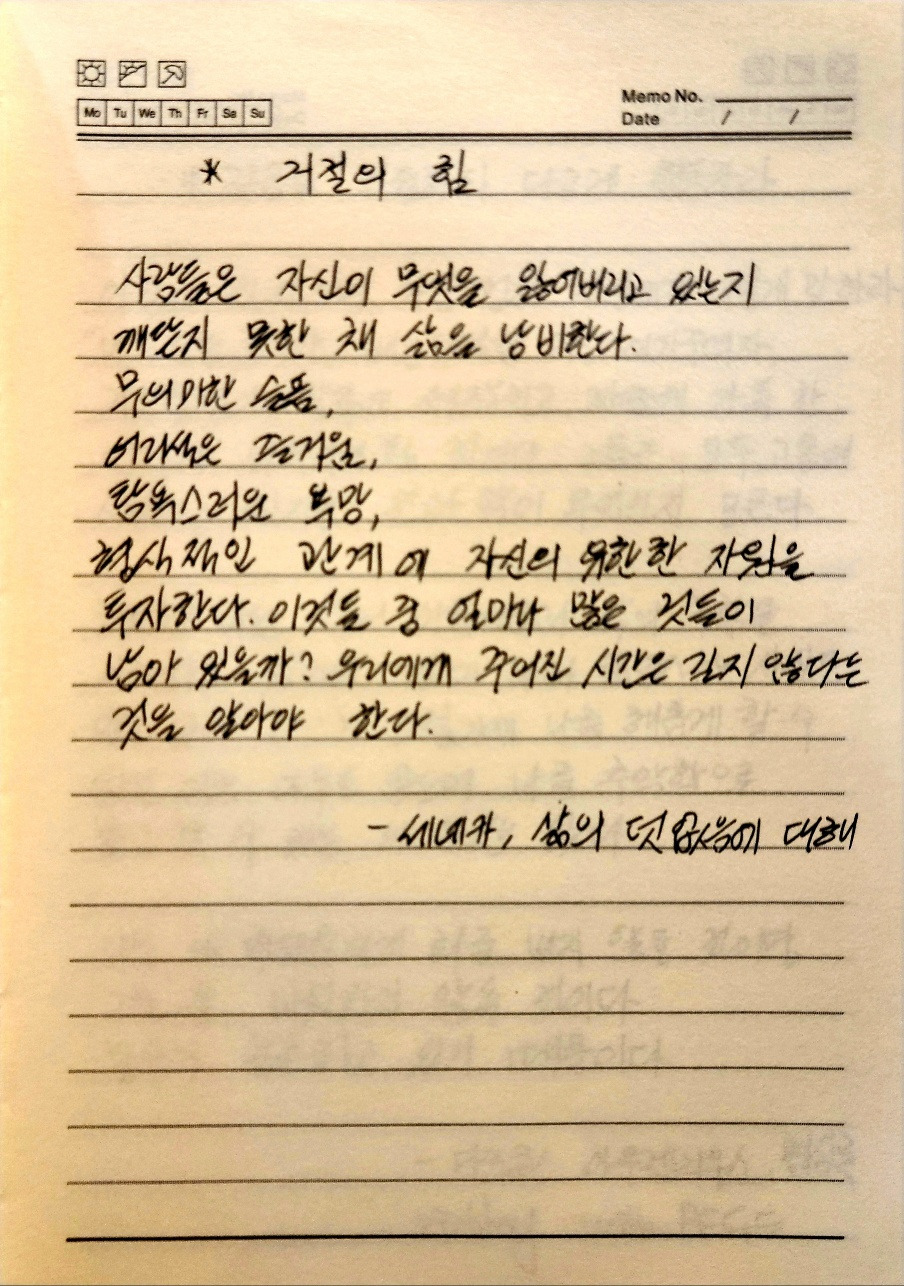 Memo No.
Mo Tu We Th Fr Sa Su
Date / /
* 거절의 힘
사람들은 자신이 무엇을 잃어버리고 있는지
깨닫지 못한 채 삶을 낭비한다.
무의미한 슬픔,
어리석은 즐거움,
탐욕스러운 욕망,
형식적인 관계에 자신의 유한한 자원을
투자한다. 이것들 중 얼마나 많은 것들이
남아 있을까? 우리에게 주어진 시간은 길지 않다는
것을 알아야 한다.
- 세네카, 삶의 덧없음에 대해